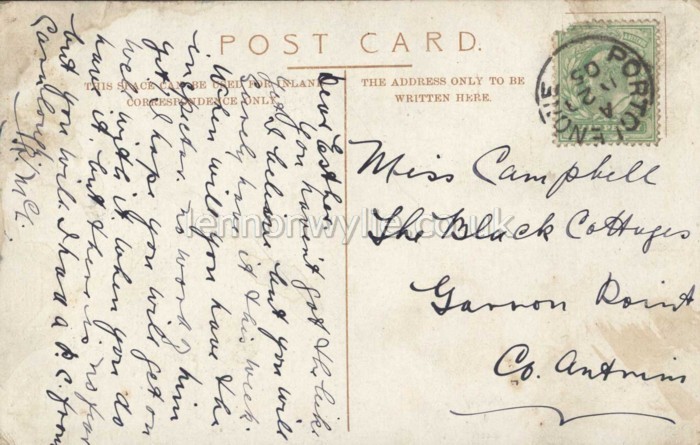 POST CARD.
THIS SPACE CAN BE USED FOR INLAND
CORRESPONDENCE ONLY.
THE ADDRESS ONLY TO BE
WRITTEN HERE.
PORTGLENONE
AU 2
05
Miss Campbell
The Black Cottages
Garron Point
Co. Antrim
Dear Esther
You havent got the like
I believe but you will
surely have it this week.
When will you have the
inspector. no word of him
yet. I hope you will get on
well with it when you do
have it. but there is no fear
but you will. I had a P.C. from
lennonwylie.co.uk